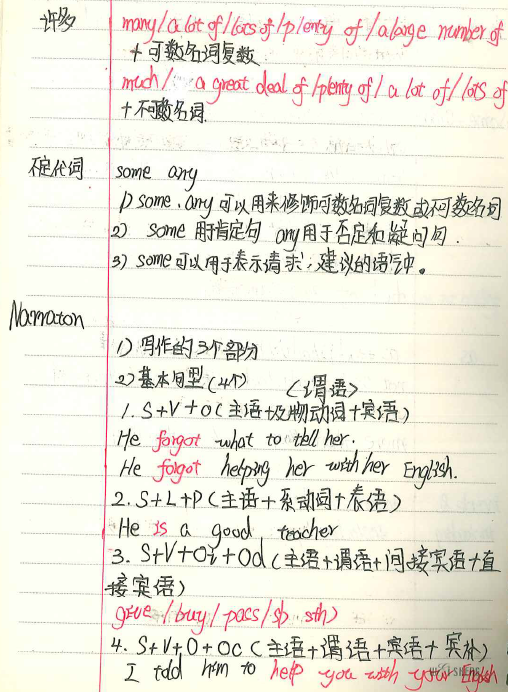 许多 many/a lot of/lots of/plenty of/a large number of
+可数名词复数
much/ a great deal of/plenty of/a lot of/lots of
+不可数名词.
不定代词 some any
1) some、any可以用来修饰可数名词复数或不可数名词
2) some 用肯定句 any用于否定和疑问句.
3) some可以用于表示请求,建议的语气中。
Narraton
1) 写作的3个部分
2) 基本句型(4个) (谓语)
1. S+V+O(主语+及物动词+宾语)
He forgot what to tell her.
He forgot helping her with her English.
2. S+L+P(主语+系动词+表语)
He is a good teacher
3. S+V+Oi+Od(主语+谓语+间接宾语+直
接宾语)
give/buy/pass/sb sth)
4. S+V+O+Oc(主语+谓语+宾语+宾补)
I told him to help you with your English